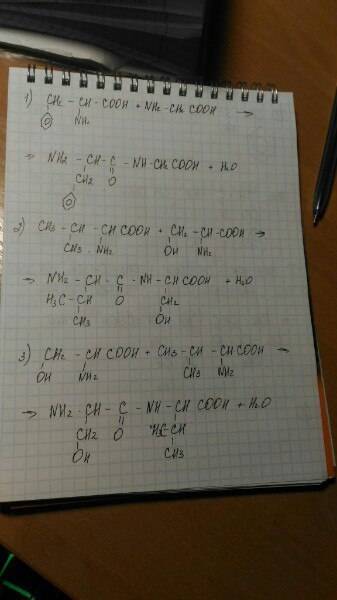 1) CH2 – CH – COOH + NH2 – CH2 COOH →
NH2
→ NH2 – CH – C – NH – CH2 COOH + H2O
CH2 O
2) CH3 – CH – CH COOH + CH2 – CH – COOH →
CH3 NH2 OH NH2
→ NH2 – CH – C – NH – CH COOH + H2O
H3C – CH O CH2
CH3 OH
3) CH2 – CH COOH + CH3 – CH – CH COOH →
OH NH2 CH3 NH2
→ NH2 – CH – C – NH – CH COOH + H2O
CH2 O H3C – CH
OH CH3